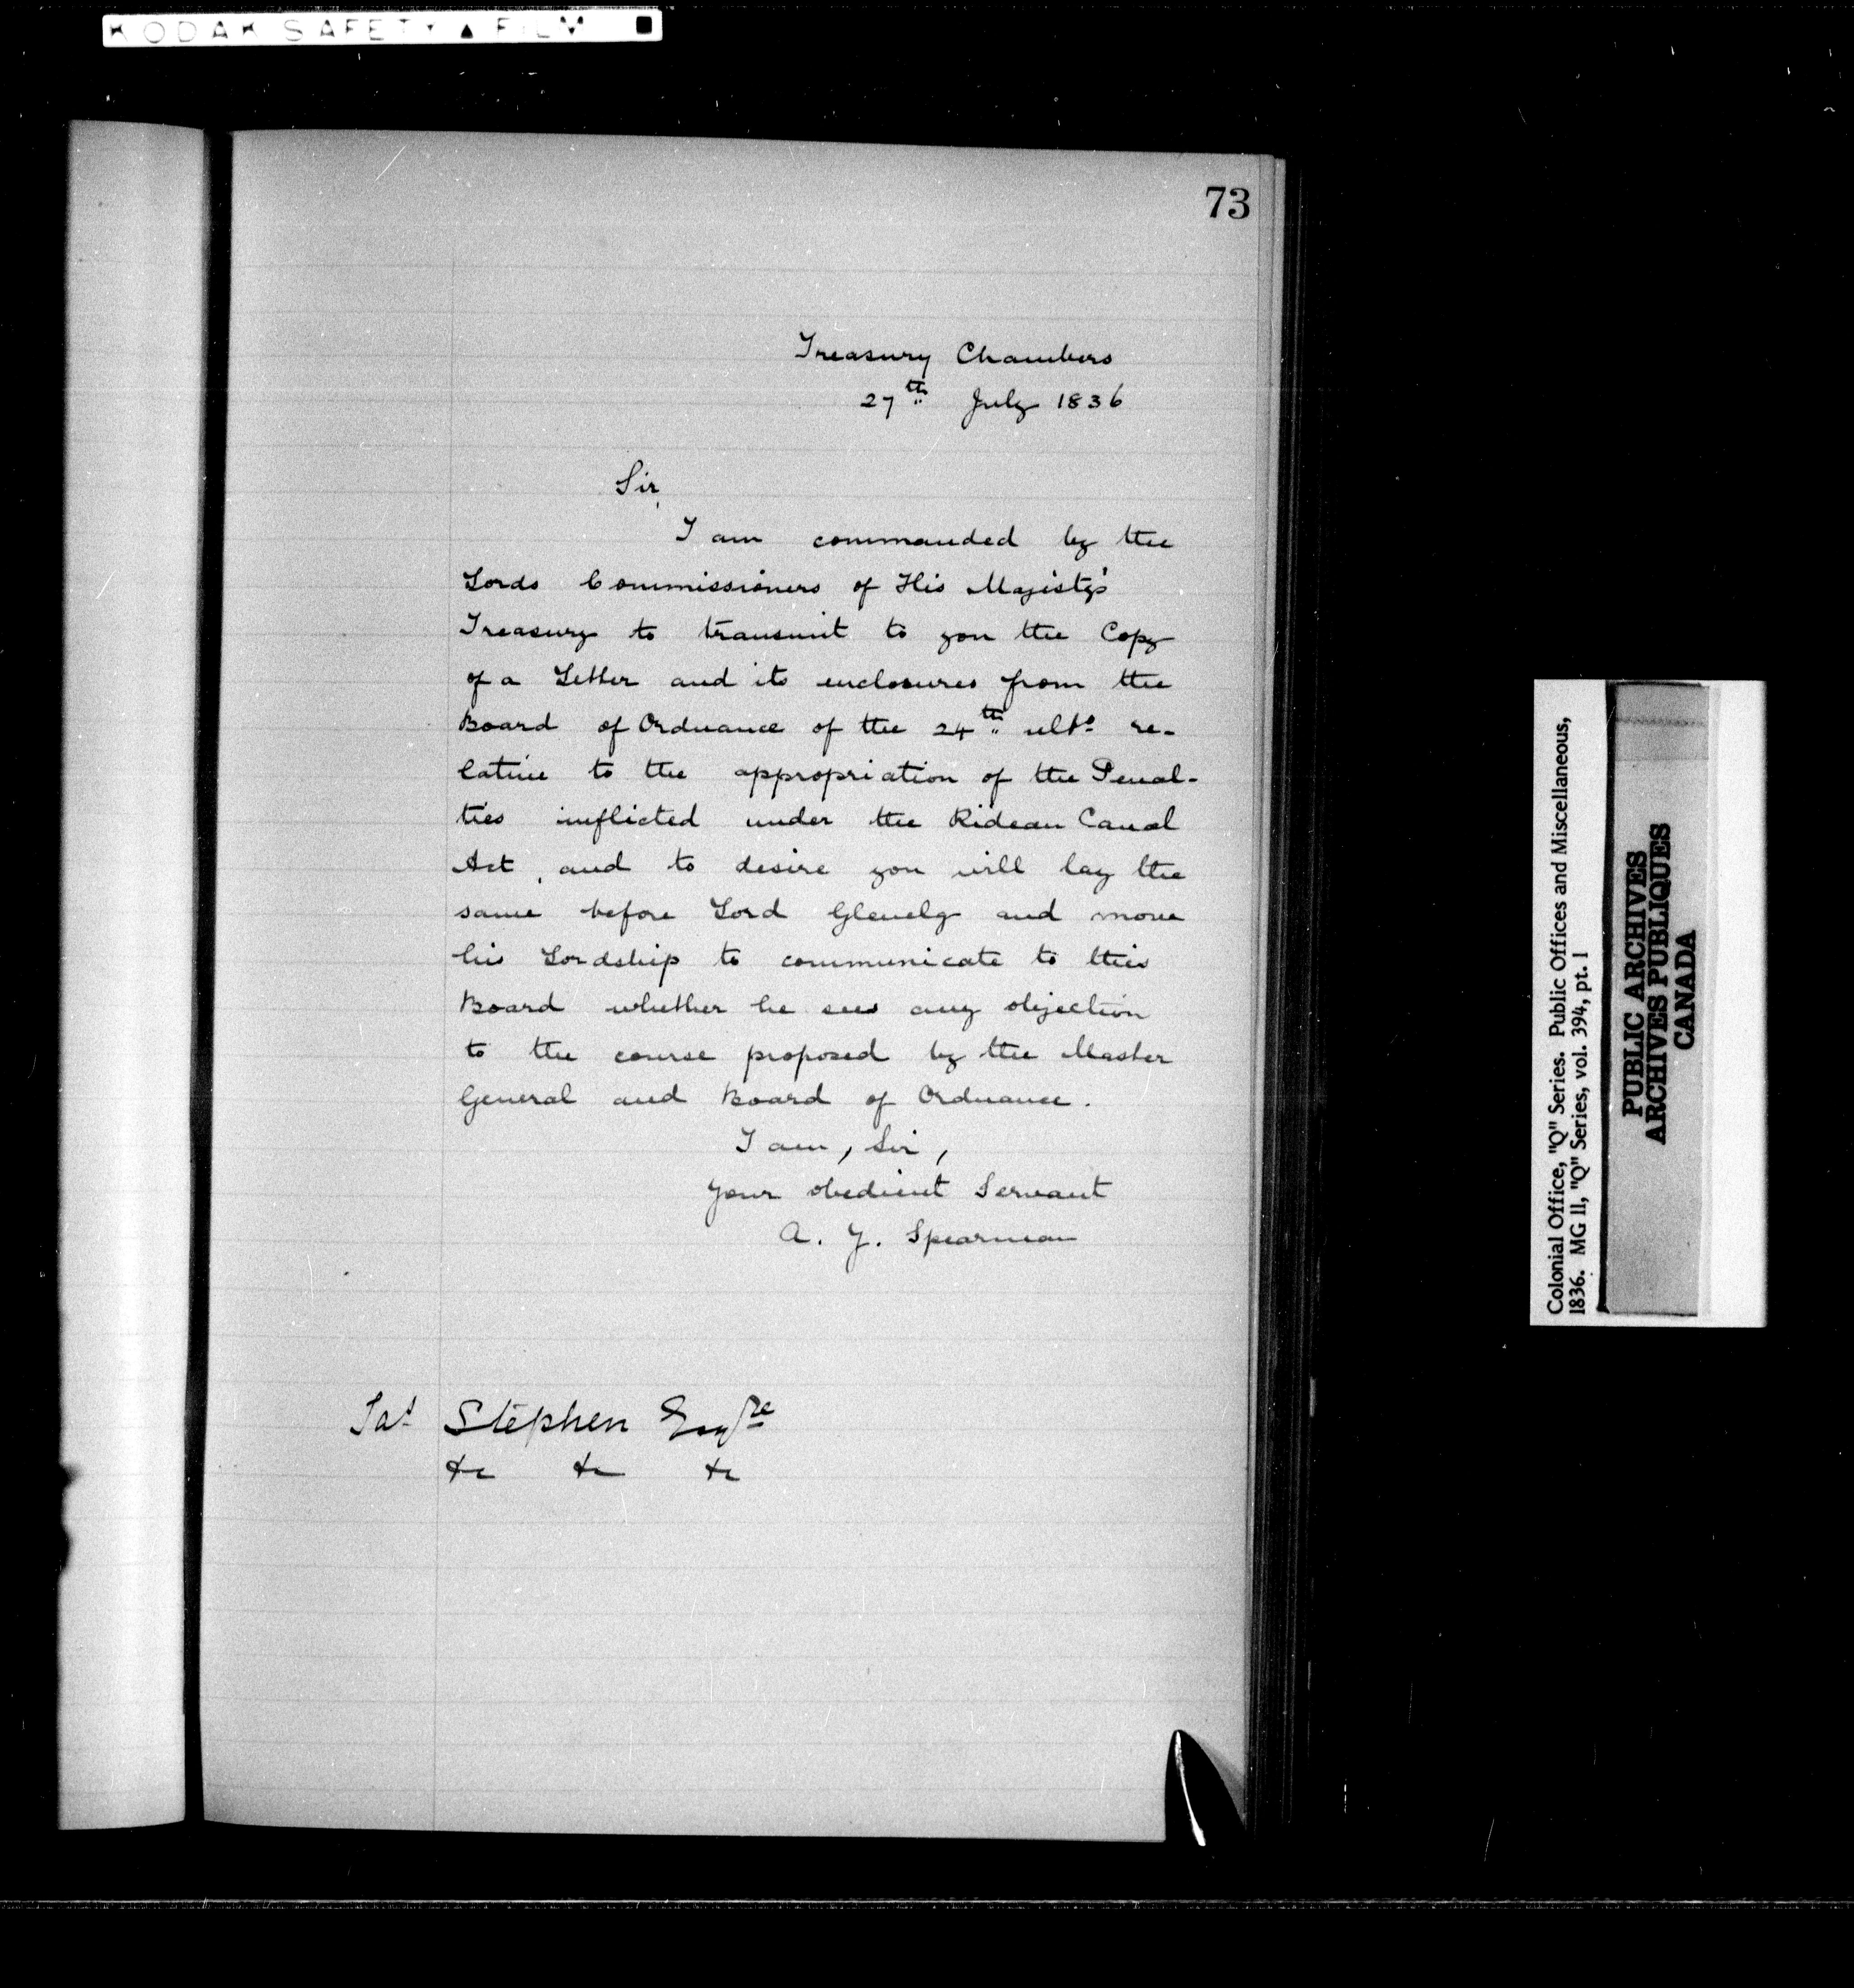 KODAK SAFETY ▲ FILM ■
73
Treasury Chambers
27th July 1836
Sir,
I am commanded by the
Lords Commissioners of His Majesty's
Treasury to transmit to you the Copy
of a Letter and its enclosures from the
Board of Ordnance of the 24th ulto re-
lative to the appropriation of the Penal-
ties inflicted under the Rideau Canal
Act, and to desire you will lay the
same before Lord Glenelg and move
his Lordship to communicate to this
Board whether he sees any objection
to the course proposed by the Master
General and Board of Ordnance.
I am, Sir,
Your obedient Servant
A. Y. Spearman
Jas Stephen Esqre
&c &c &c
Colonial Office, "Q" Series. Public Offices and Miscellaneous,
1836. MG 11, "Q" Series, vol. 394, pt. 1
PUBLIC ARCHIVES
ARCHIVES PUBLIQUES
CANADA